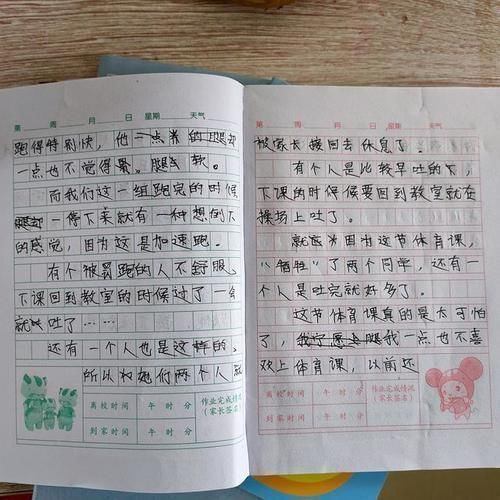 第 周 月 日 星期 天气
跑得特别快，他一点米的腿却
一点也不觉得累。腿么 软。
而我们这一组跑完的时候
腿却一停下来就有一种想倒下
的感觉，因为这是加速跑。
有个被罚跑的人不舒服，
下课回到教室的时候过了一会
就吐了……
还有一个人也是这样的，
所以为她们两个人就
离校时间 午 时 分 作业完成情况
（家长签名）
到家时间 午 时 分
第 周 月 日 星期 天气
被家长接回去休息了
有个人是比较早吐的下，
下课的时候候要回到教室就在
操场上吐了。
就应为因为这节体育课，
“牺牲”了两个同学，还有一
个人是吐完就好多了。
这节体育课真的是太可怕
了，我宁愿 我一点也不喜
欢上体育课，以前还
离校时间 午 时 分 作业完成情况
（家长签名）
到家时间 午 时 分